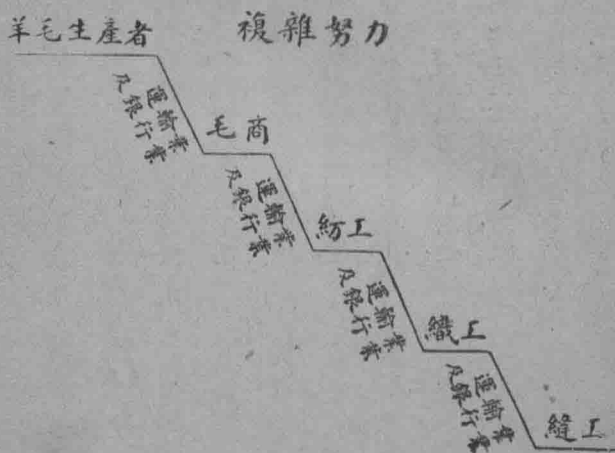 複雜努力
羊毛生產者
運輸業
及銀行業
毛商
運輸業
及銀行業
紡工
運輸業
及銀行業
織工
運輸業
及銀行業
縫工